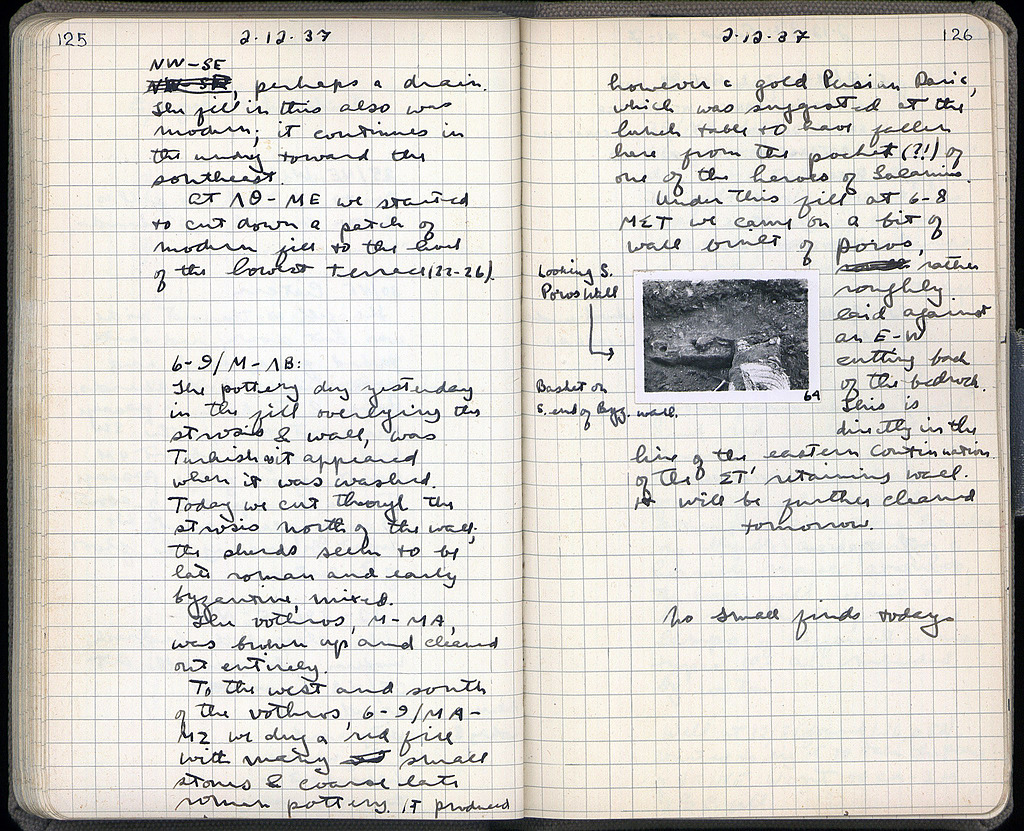 125
2.12.37
NW-SE
NW-SE, perhaps a drain.
The fill in this also was
modern; it continues in
the unding toward the
southeast.
At ΛΘ-ME we started
to cut down a patch of
modern fill to the level
of the lowest terrace (22-26).
6-9/M-ΛB:
The pottery dug yesterday
in the fill overlying the
strosis & wall, was
Turkish it appeared
when it was washed.
Today we cut through the
strosis north of the wall;
the sherds seem to be
late roman and early
byzantine, mixed.
The vothros, M-MA,
was broken up and cleaned
out entirely.
To the west and south
of the vothros, 6-9/MA-
MZ we dug a red fill
with many small
stones & coarse late
roman pottery. It produced
2.12.37
126
however a gold Persian Daric,
which was suggested at the
lunch table to have fallen
here from the pocket (?!) of
one of the heroes of Salamis.
Under this fill at 6-8
MΣT we came on a bit of
wall built of poros,
rather
roughly
laid against
an E-W
cutting back
of the bedrock.
This is
directly in the
line of the eastern continuation
of the ΣT' retaining wall.
It will be further cleaned
tomorrow.
Looking S.
Poros Wall
Basket on
S. end of Byz. wall.
64
No small finds today.